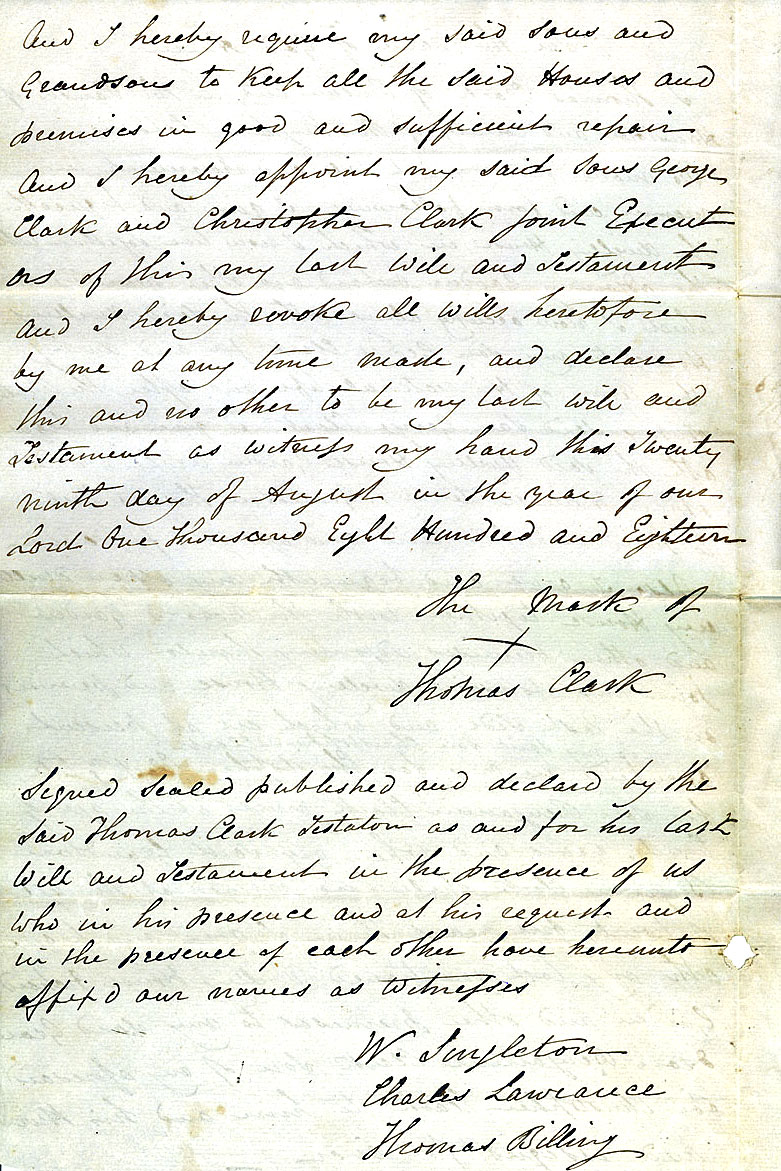 And I hereby require my said Sons and
Grandsons to Keep all the said Houses and
premises in good and sufficient repair
And I hereby appoint my said Sons George
Clark and Christopher Clark Joint Execut
ors of this my last Will and Testament
And I hereby revoke all Wills heretofore
by me at any time made, and declare
this and no other to be my last Will and
Testament as witness my hand this Twenty
ninth day of August in the year of our
Lord One Thousand Eight Hundred and Eighteen
The Mark of
X
Thomas Clark
Signed Sealed published and declard by the
Said Thomas Clark Testator as and for his last
Will and Testament in the presence of us
Who in his presence and at his request and
in the presence of each other have hereunto
affix'd our names as Witnesses
W. Singleton
Charles Lawrance
Thomas Billing